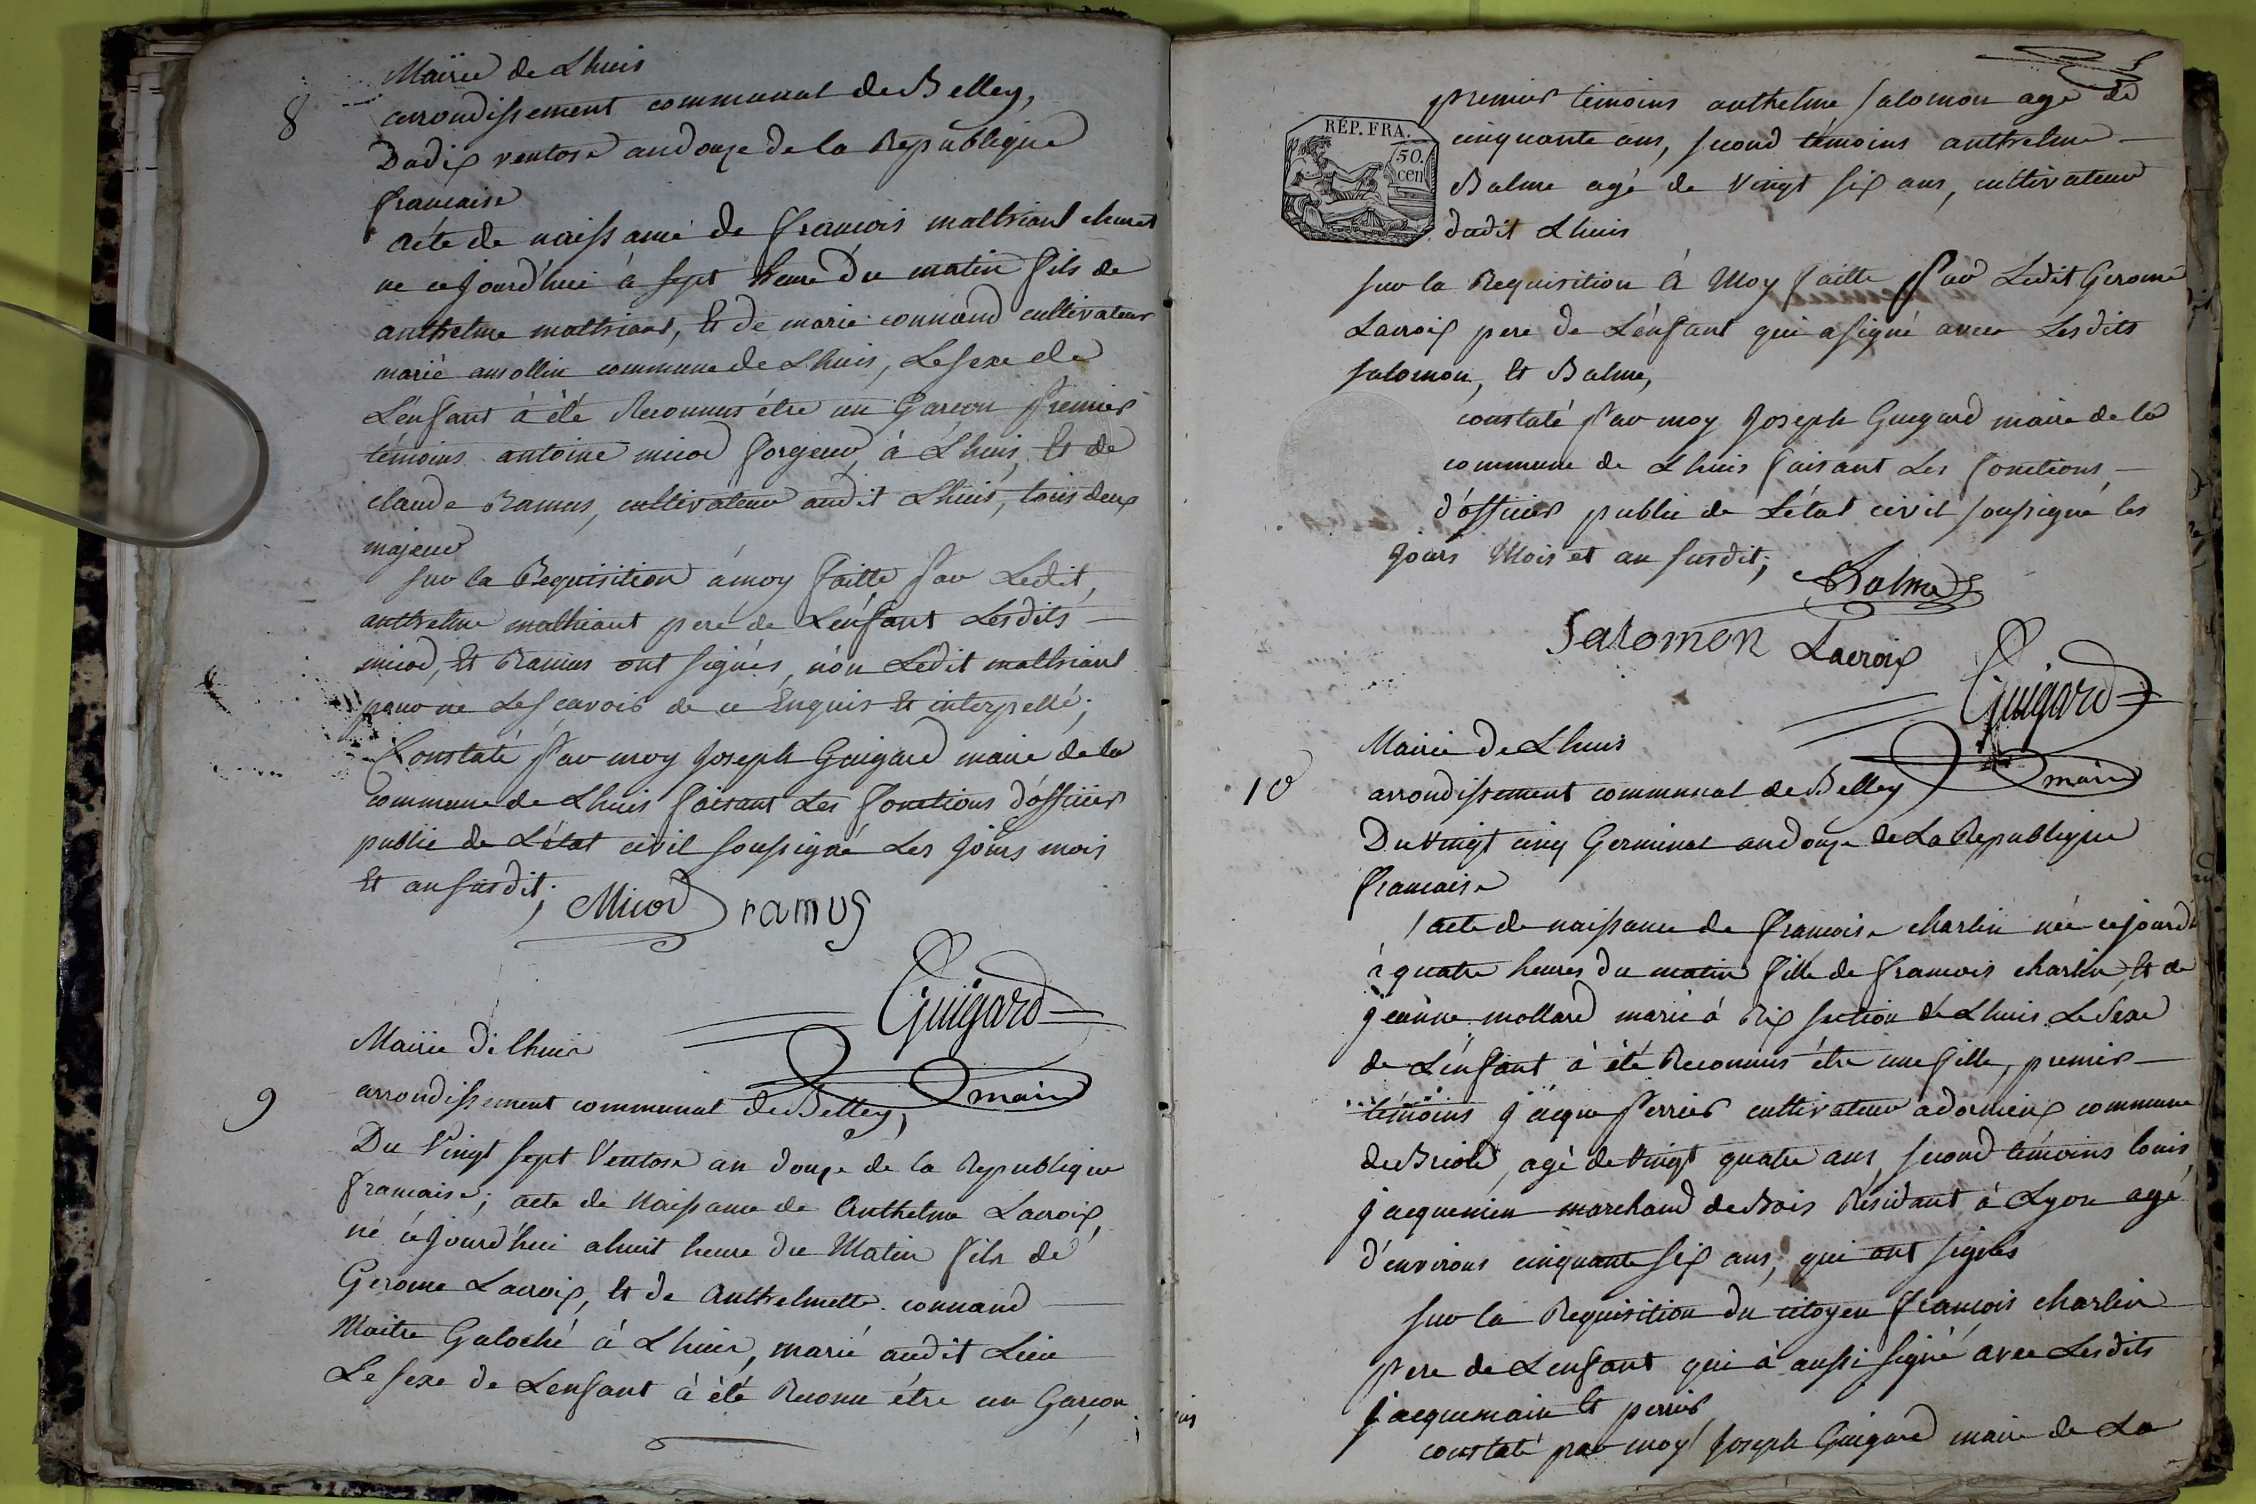 8
Mairie de Lhuis
arrondissement communal de Belley,
Dudix ventose an douze de la Republique
francaise
acte de naissance de francois mathiant
né cejourd'hui à sept heure du matin fils de
anthelme mathiant, et de marie connand cultivateur
marié commune de Lhuis, Le sexe de
L'enfant à été Reconnus être un Garcon premier
témoins antoine micod forgeur à Lhuis, et de
claude Ramus, cultivateur audit Lhuis, tous deux
majeur
sur la Requisition à moy faitte par Ledit,
anthelme mathiant pere de L'enfant Lesdits
micod, et Ramus ont signés, non Ledit mathiant
pour ne Le scavoir de ce Enquis et interpellé;
Constaté par moy Joseph Guigard maire de la
commune de Lhuis faisant Les fonctions d'officier
public de L'état civil soussigné Les jours mois
et an susdit;
Micod ramus
Guigard
maire
9
Mairie de lhuis
arrondissement communal de Belley,
Du Vingt sept Ventose an douze de la Republique
francaise; acte de Naissance de Anthelme Lacroix,
né cejourd'hui a huit heure du Matin fils de
Gerome Lacroix, et de Anthelmette connand
Maitre Galoché à Lhuis, marié audit Lieu
Le sexe de L'enfant à été Reconu être un Garcon,
5
RÉP. FRA.
50.
cen
premier témoins anthelme salomon agé de
cinquante ans, second témoins anthelme
Balme agé de vingt six ans, cultivateur
dudit Lhuis
sur la Requisition à Moy faitte par Ledit Gerome
Lacroix pere de L'enfant qui a signé avec Lesdits
salomon, et Balme,
constaté par moy Joseph Guigard maire de la
commune de Lhuis faisant Les fonctions,
d'officier public de L'état civil soussigné les
jours Mois et an susdit;
Balme
Salomon Lacroix
Guigard
maire
10
Mairie de Lhuis
arrondissement communal de Belley
Du Vingt cinq Germinal an douze de La Republique
francaise
acte de naissance de francoise charlin née cejourd
à quatre heures du matin fille de francois charlin, et de
jeanne mollard marié à Rix section de Lhuis Le Sexe
de L'enfant à été Reconnus être une fille, premier
témoins jacque Perrier cultivateur a commune
de Briord, agé de vingt quatre ans, second témoins louis,
jacquemin marchand de Bois Résidant à Lyon agé
d'environs cinquante six ans, qui ont signés
sur la Requisition du citoyen francois charlin
Pere de L'enfant qui à aussi signé avec Lesdits
jacquemain et perrier
constaté par moy Joseph Guigard maire de La